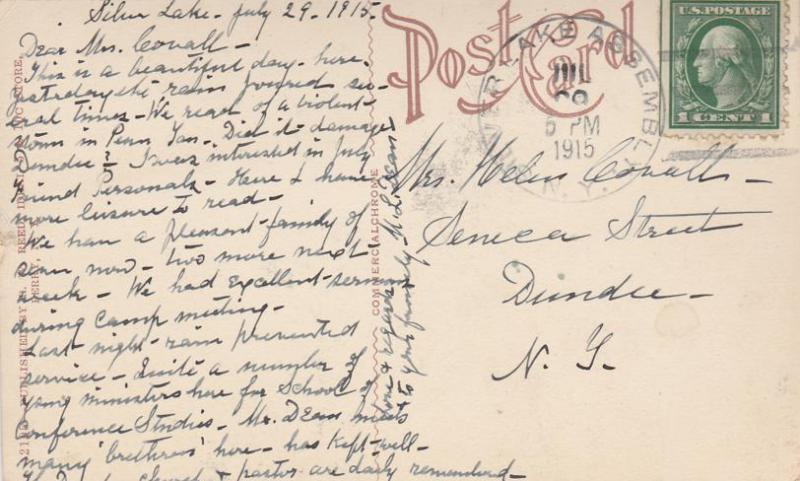 Silver Lake - July 29 - 1915.
Dear Mrs. Covall -
This is a beautiful day - here.
Yesterday the rain poured sev-
eral times - We read of a violent
storm in Penn Yan. Did it damage
Dundee? I was interested in July
Friend Personals - Here I have
more leisure to read -
We have a pleasant family of
seven now - two more next
week - We had excellent sermons
during Camp meeting.
Last night - rain prevented
service - Quite a number of
young ministers here for School of
Conference Studies - Mr. Dean meets
many 'brethren' here - has kept well -
church & pastor are daily remembered -
Love & regards
to your family - M. L. Dean
Post Card
SILVER LAKE ASSEMBLY
N. Y.
JUL
29
5 PM
1915
U.S. POSTAGE
1 CENT 1
Mrs. Helen Covall -
Seneca Street
Dundee -
N. Y.
COMMERCIALCHROME
PUBLISHED BY REED STORE,
PERRY,